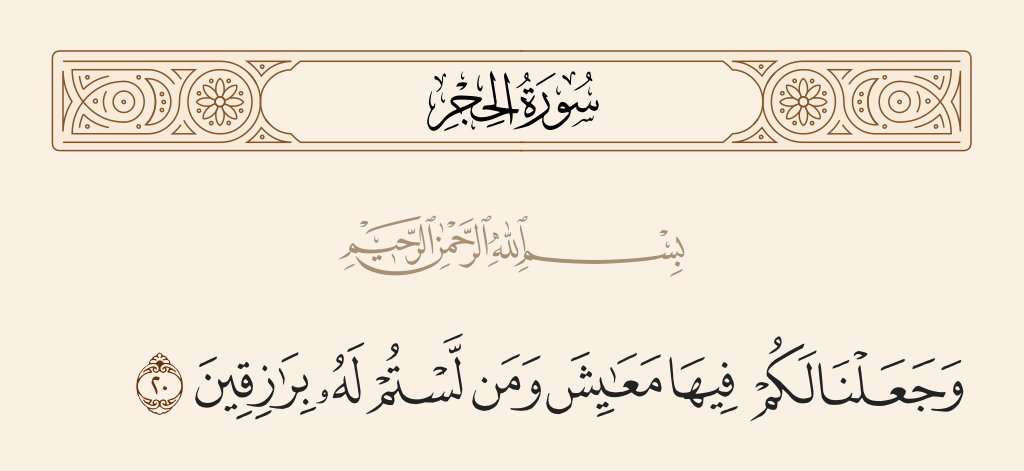 سُورَةُ الْحِجْرِ
بِسْمِ ٱللَّهِ ٱلرَّحْمَٰنِ ٱلرَّحِيمِ
وَجَعَلْنَا لَكُمْ فِيهَا مَعَٰيِشَ وَمَن لَّسْتُمْ لَهُۥ بِرَٰزِقِينَ ٢٠